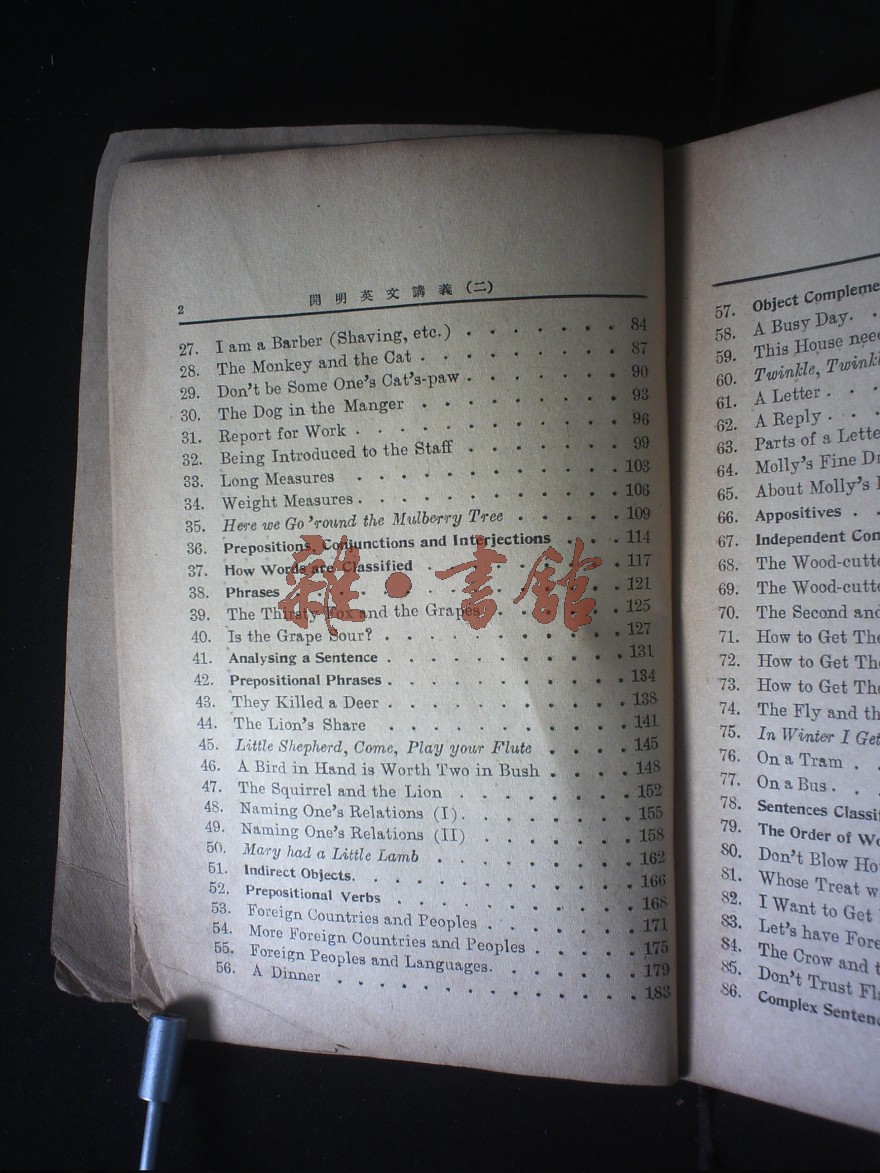 2 開明英文講義(二)
27. I am a Barber (Shaving, etc.) . . . . . . . 84
28. The Monkey and the Cat . . . . . . . . 87
29. Don't be Some One's Cat's-paw . . . . . . . 90
30. The Dog in the Manger . . . . . . . . 93
31. Report for Work . . . . . . . . . . 96
32. Being Introduced to the Staff . . . . . . . 99
33. Long Measures . . . . . . . . . . 103
34. Weight Measures . . . . . . . . . . 106
35. Here we Go 'round the Mulberry Tree . . . . . 109
36. Prepositions, Conjunctions and Interjections . . . 114
37. How Words are Classified . . . . . . . . 117
38. Phrases . . . . . . . . . . . . 121
39. The Thirsty Fox and the Grapes . . . . . . 125
40. Is the Grape Sour? . . . . . . . . . 127
41. Analysing a Sentence . . . . . . . . . 131
42. Prepositional Phrases . . . . . . . . . 134
43. They Killed a Deer . . . . . . . . . 138
44. The Lion's Share . . . . . . . . . 141
45. Little Shepherd, Come, Play your Flute . . . . 145
46. A Bird in Hand is Worth Two in Bush . . . . 148
47. The Squirrel and the Lion . . . . . . . 152
48. Naming One's Relations (I) . . . . . . . 155
49. Naming One's Relations (II) . . . . . . . 158
50. Mary had a Little Lamb . . . . . . . . 162
51. Indirect Objects. . . . . . . . . . . 166
52. Prepositional Verbs . . . . . . . . . 168
53. Foreign Countries and Peoples . . . . . . 171
54. More Foreign Countries and Peoples . . . . . 175
55. Foreign Peoples and Languages. . . . . . . 179
56. A Dinner . . . . . . . . . . . . 183
57. Object Compleme
58. A Busy Day. .
59. This House nee
60. Twinkle, Twinkl
61. A Letter . . .
62. A Reply . . .
63. Parts of a Lette
64. Molly's Fine Dr
65. About Molly's
66. Appositives . .
67. Independent Con
68. The Wood-cutte
69. The Wood-cutte
70. The Second and
71. How to Get The
72. How to Get The
73. How to Get The
74. The Fly and th
75. In Winter I Get
76. On a Tram . .
77. On a Bus . . .
78. Sentences Classif
79. The Order of Wo
80. Don't Blow Ho
81. Whose Treat w
82. I Want to Get
83. Let's have Fore
84. The Crow and t
85. Don't Trust Fl
86. Complex Sentenc
雜·書館